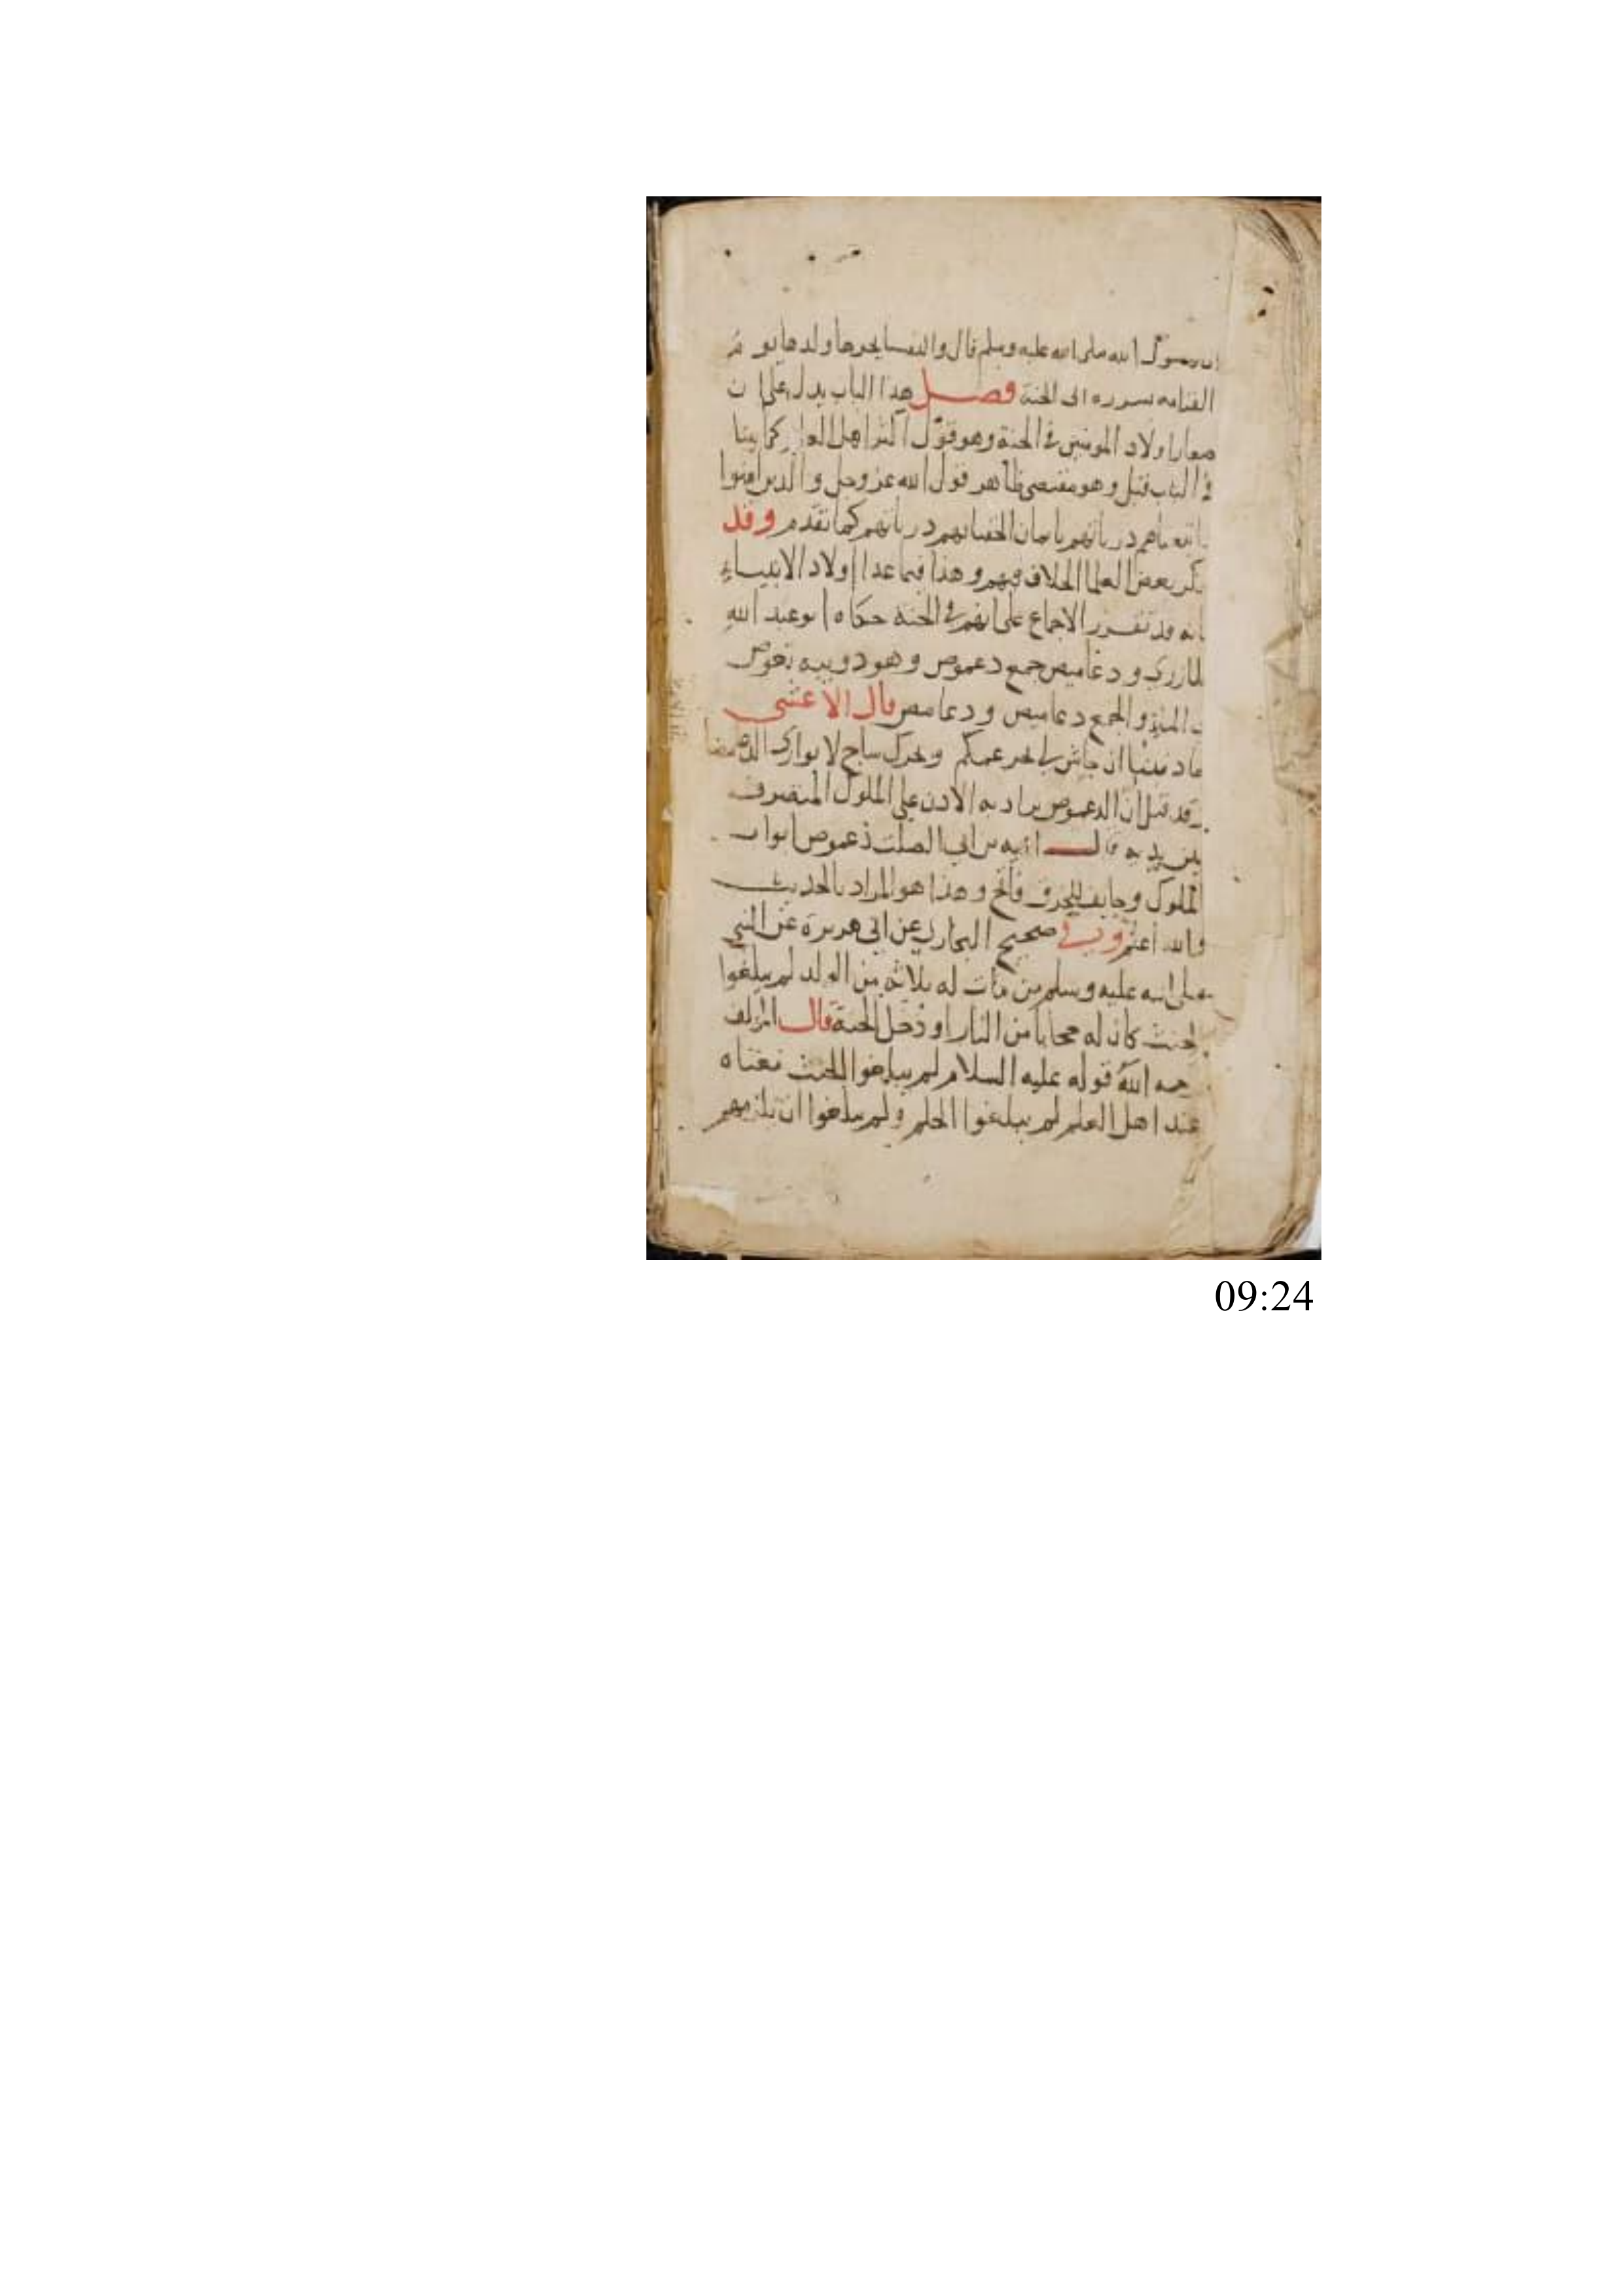 ان رسول الله صلى الله عليه وسلم قال والنفسا يجرها ولدها يوم
القيامه بسرره الى الجنة فصل هذا الباب يدل على ان
صغار اولاد المومنين في الجنة وهو قول اكثر اهل العلم كما بينا
في الباب قبل وهو مقتضى ظاهر قول الله عز وجل والذين امنوا
واتبعناهم ذرياتهم بايمان الحقنا بهم ذرياتهم كما تقدم وقد
ذكر بعض العلما الخلاف فيهم وهذا فيما عدا اولاد الانبياء
فانه قد تقرر الاجماع على انهم في الجنة حكاه ابو عبد الله
المازري ودعاميص جمع دعموص وهو دويبه تغوص
في الماء والجمع دعاميص ودعامص قال الاعشى
فما ذنبنا ان جاش بحر عمكم وبحرك ساج لا يوارى الدعامصا
وقد قيل ان الدعموص يراد به الاذن على الملوك المتصرف
بين يديه قال اميه بن ابي الصلت دعموص ابواب
الملوك وجايب للخرق فاتح وهذا هو المراد بالحديث
والله اعلم وفي صحيح البخاري عن ابي هريرة عن النبي
صلى الله عليه وسلم من مات له ثلاثة من الولد لم يبلغوا
الحنث كان له حجابا من النار او دخل الجنة قال المؤلف
رحمه الله قوله عليه السلام لم يبلغوا الحنث معناه
عند اهل العلم لم يبلغوا الحلم ولم يبلغوا ان تلزمهم
09:24